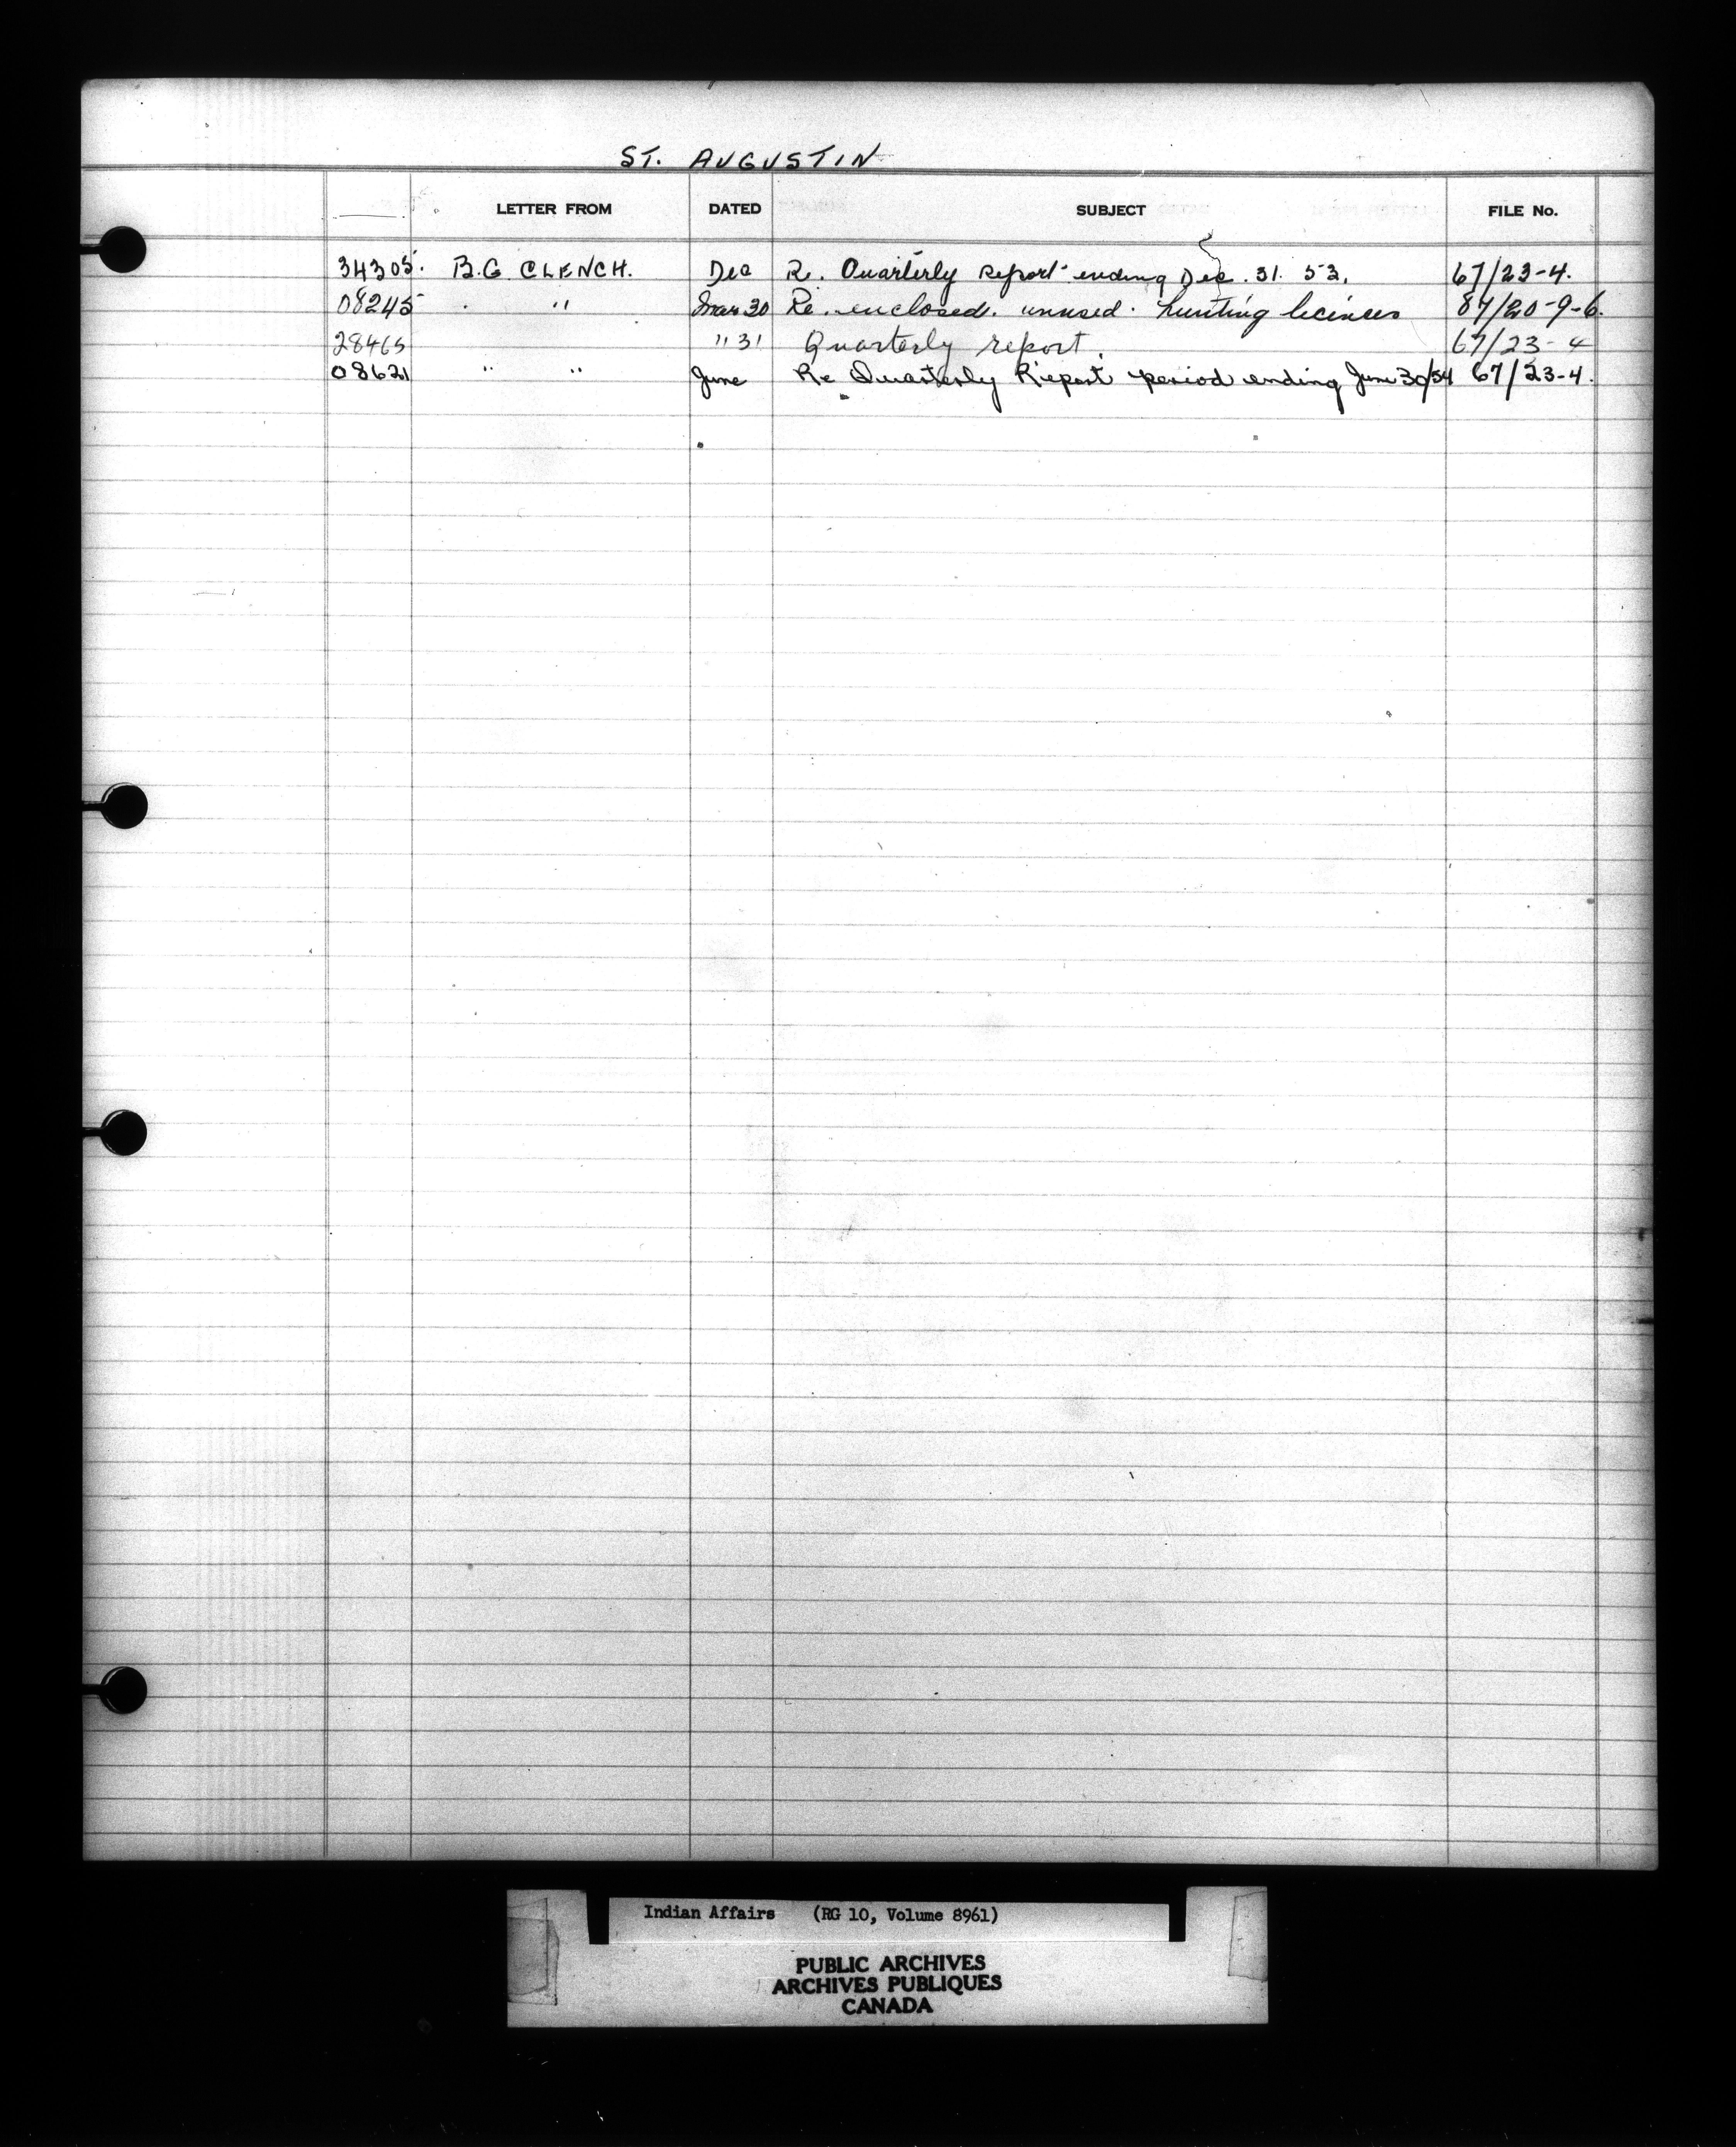 ST. AUGUSTIN
LETTER FROM DATED SUBJECT FILE No.
34305. B.G. CLENCH. Dec Re. Quarterly report ending Dec. 31. 53. 67/23-4.
08245 . " Mar 30 Re. enclosed. unused. hunting licinces 87/20-9-6.
28465 " 31 Quarterly report. 67/23-4
08621 " " June Re Quarterly Report period ending June 30/54 67/23-4.
Indian Affairs (RG 10, Volume 8961)
PUBLIC ARCHIVES
ARCHIVES PUBLIQUES
CANADA